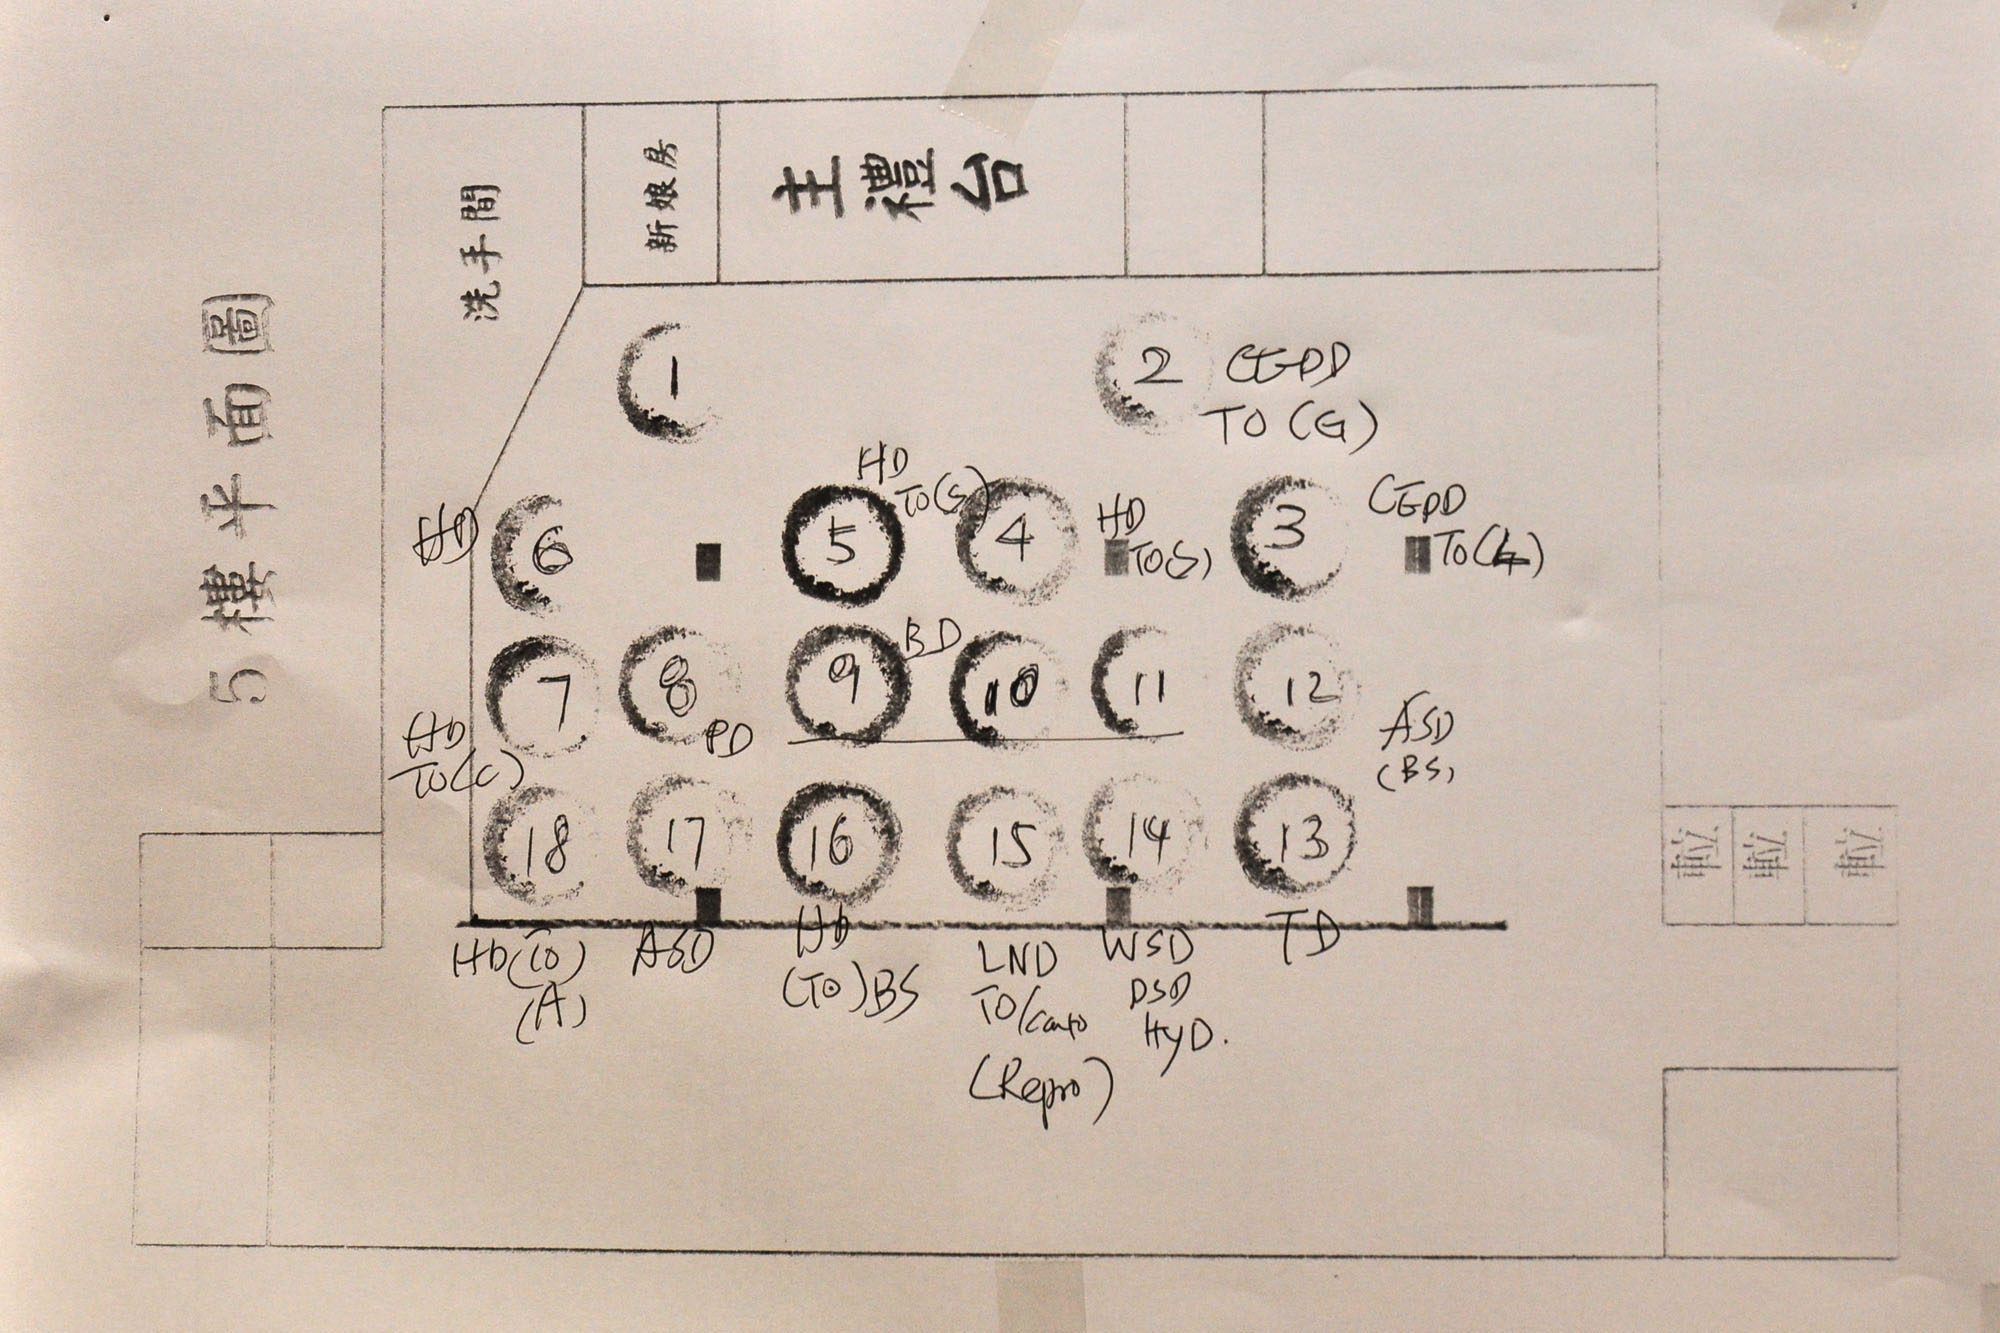 5樓平面圖
洗手間
新娘房
主禮台
1
2
CEPD
TO(G)
HD
TO(S)
HD
6
5
4
HD
TO(S)
3
CEPD
TO(G)
BD
7
8
9
10
11
12
HD
TO(C)
PD
ASD
(BS)
18
17
16
15
14
13
HD(TO)
(A)
ASD
HD
(TO)BS
LND
TO(Carto
(Repro)
WSD
DSD
HyD.
TD